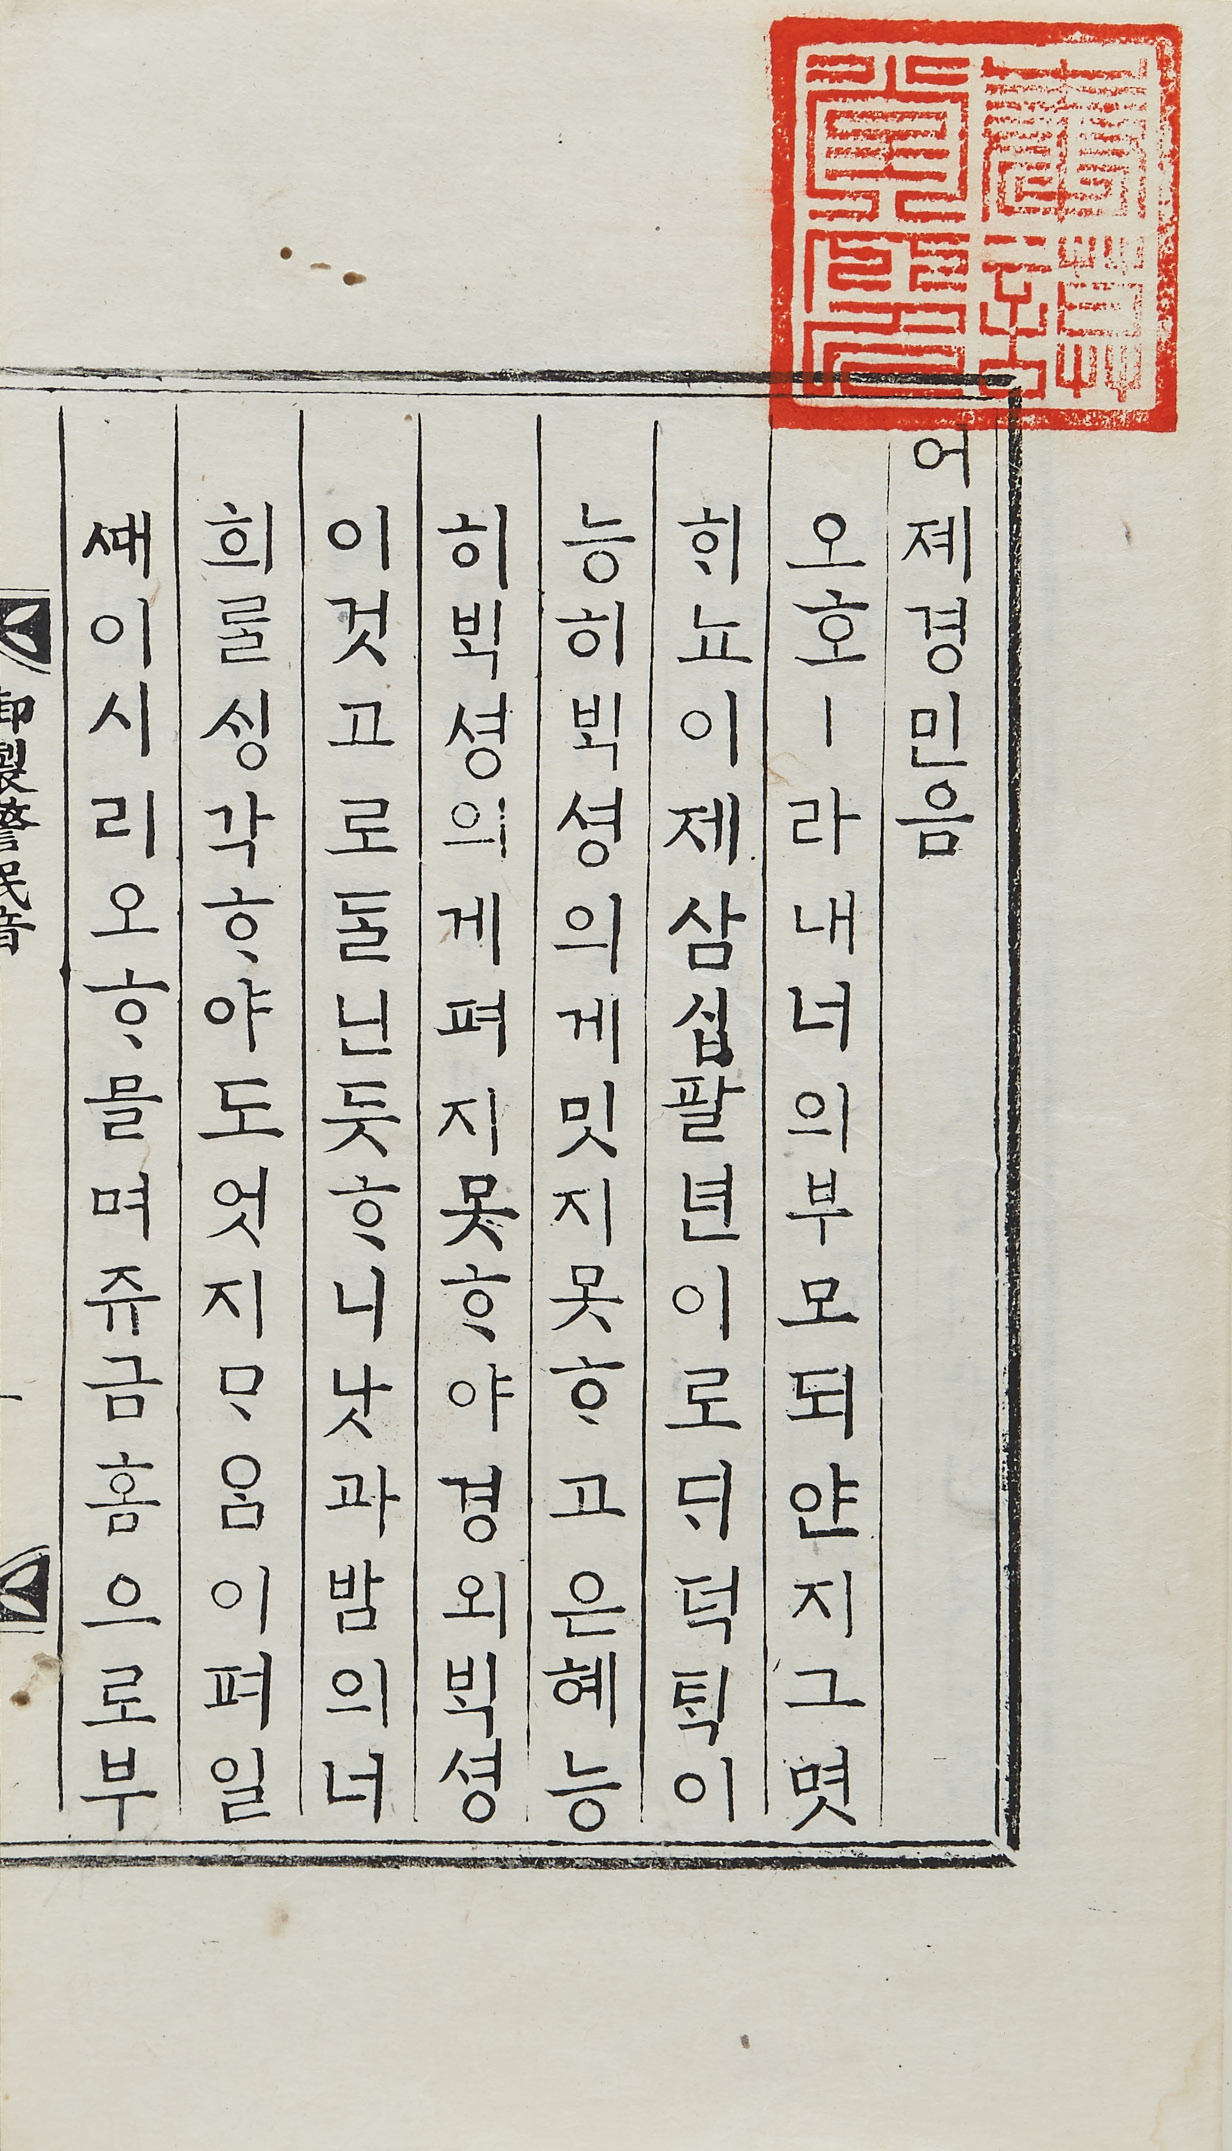 어졔경민음
오호ㅣ라내너의부모되얀지그몃
ᄒᆡ뇨이제삼십팔년이로ᄃᆡ덕ᄐᆡᆨ이
능히ᄇᆡᆨ셩의게밋지못ᄒᆞ고은혜능
히ᄇᆡᆨ셩의게펴지못ᄒᆞ야경외ᄇᆡᆨ셩
이것고로돌닌듯ᄒᆞ니낫과밤의너
희롤싱각ᄒᆞ야도엇지ᄆᆞᄋᆞᆷ이펴일
ᄯᅢ이시리오ᄒᆞ믈며쥬금홈으로부
御製警民音
一